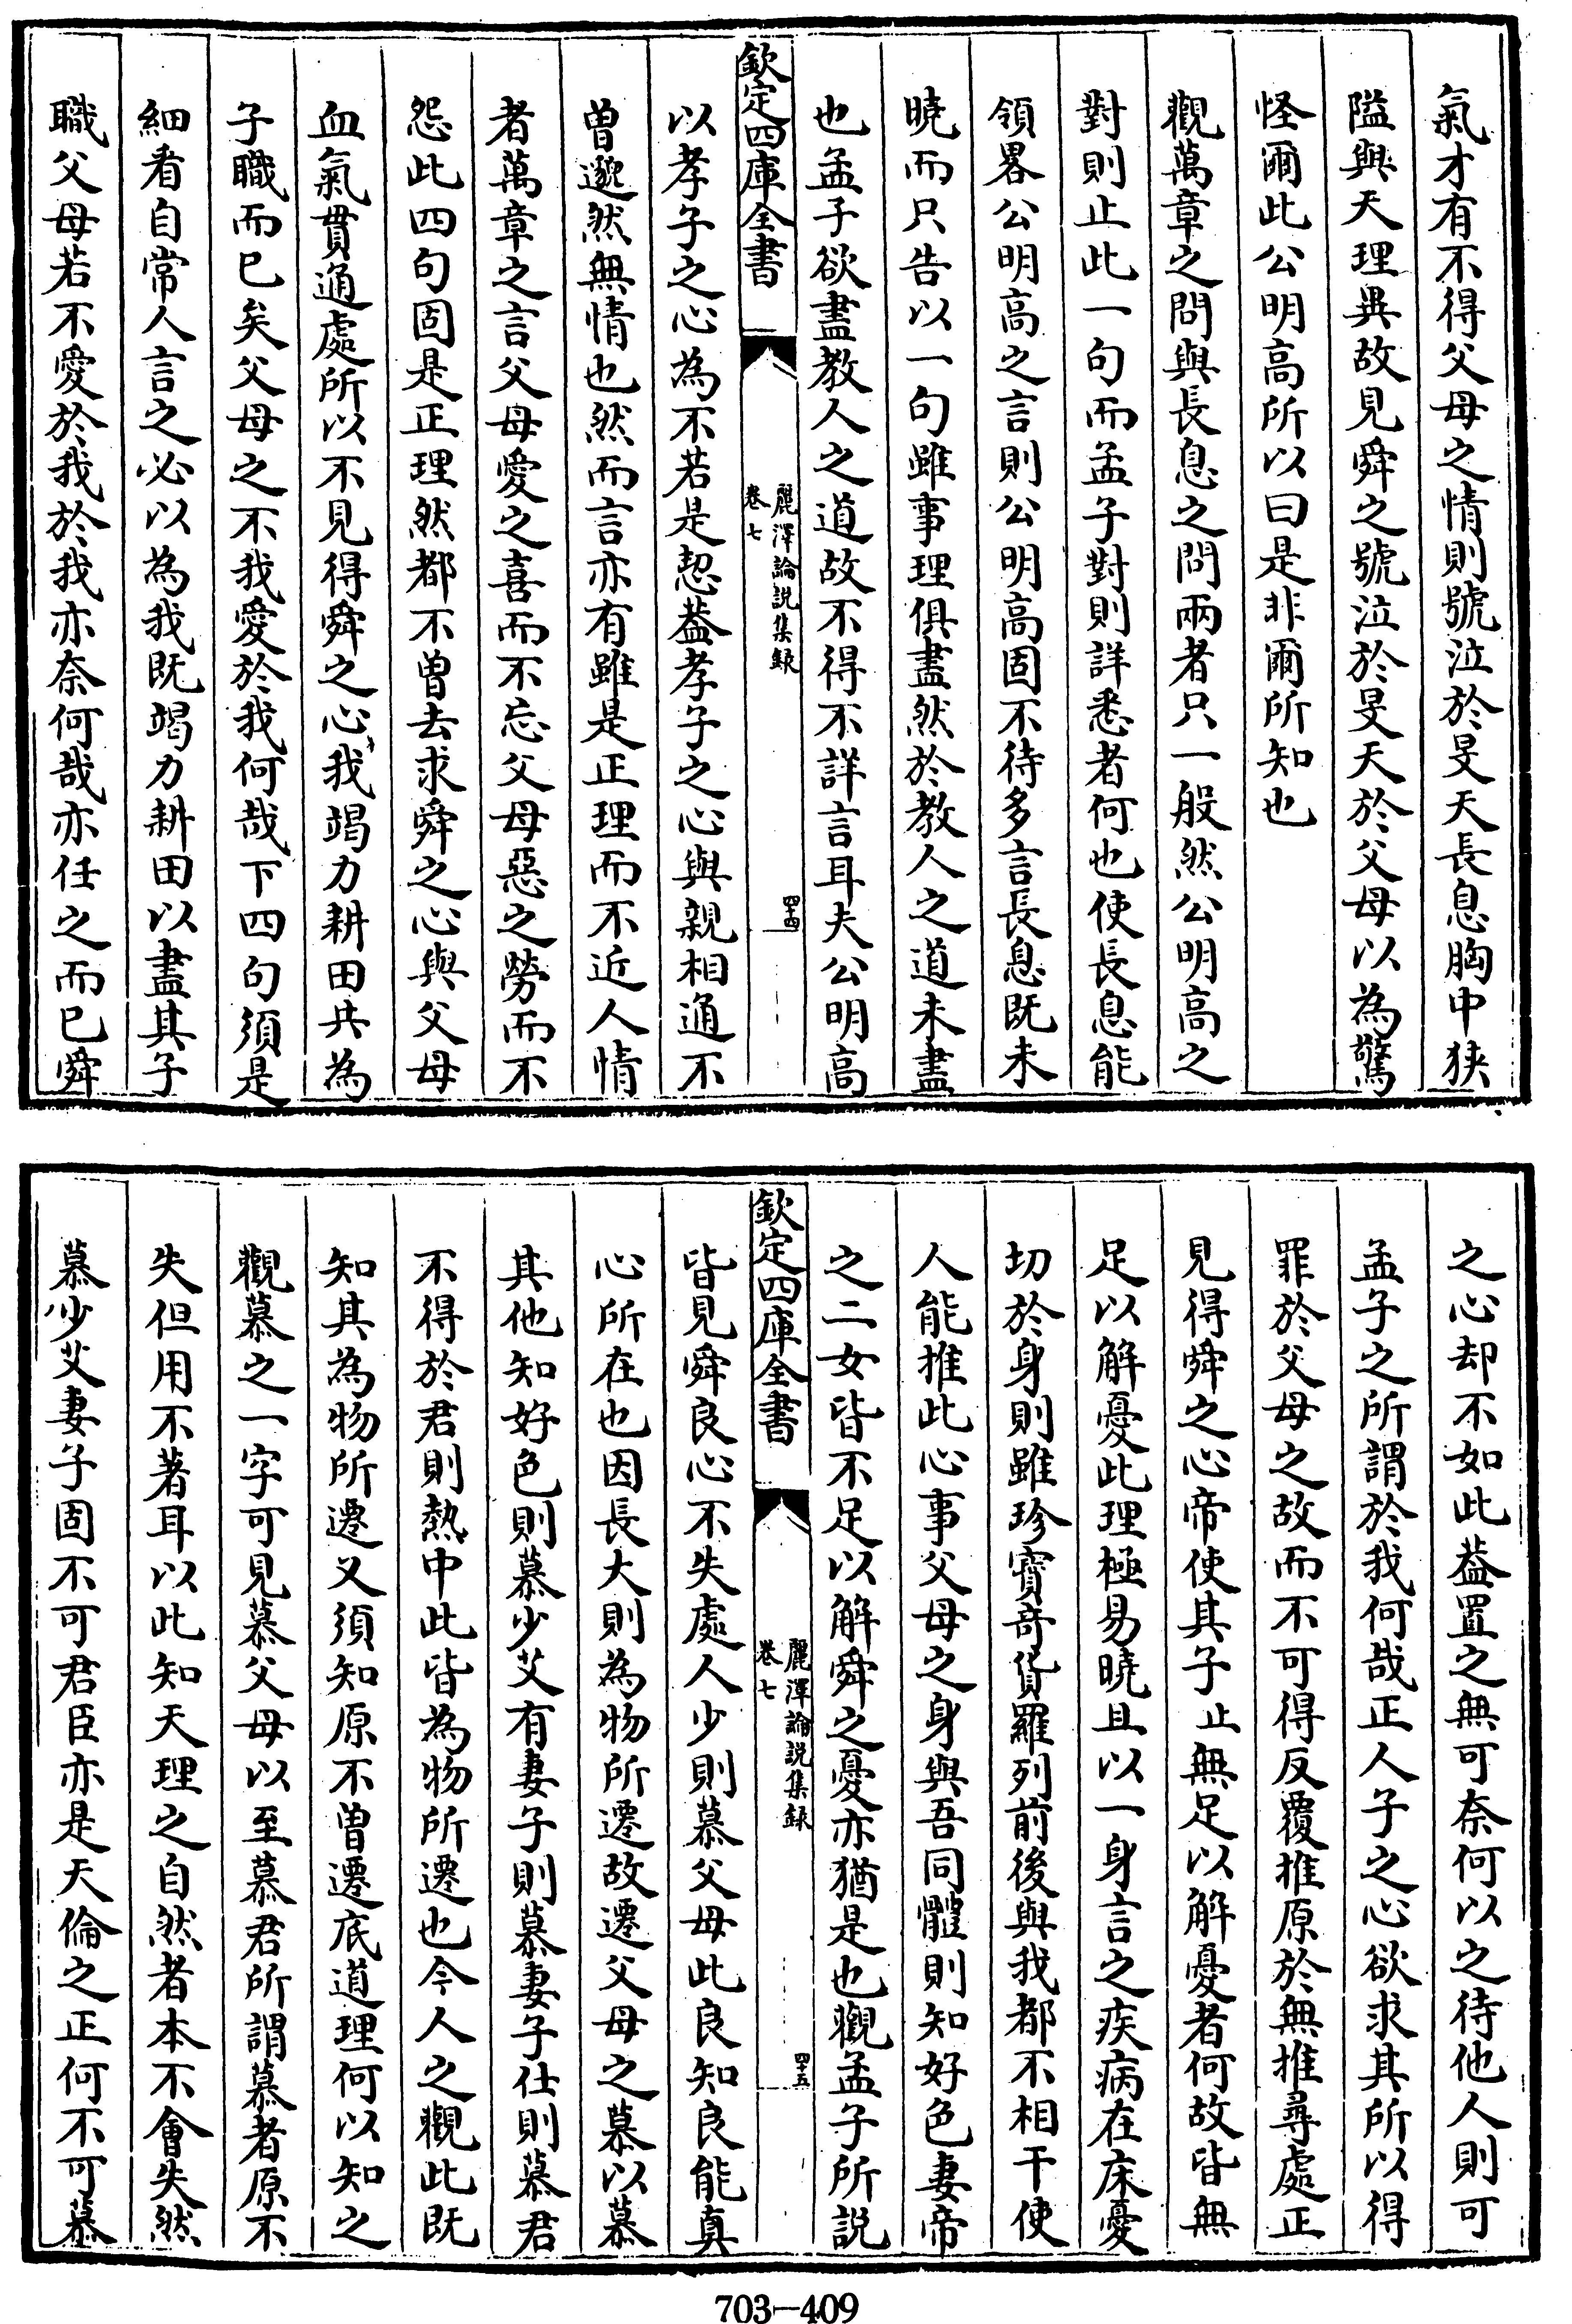 氣才有不得父母之情則號泣於旻天長息胸中狹
隘與天理異故見舜之號泣於旻天於父母以為驚
怪爾此公明高所以曰是非爾所知也
觀萬章之問與長息之問兩者只一般然公明高之
對則止此一句而孟子對則詳悉者何也使長息能
領畧公明高之言則公明高固不待多言長息既未
曉而只告以一句雖事理俱盡然於教人之道未盡
也孟子欲盡教人之道故不得不詳言耳夫公明高
欽定四庫全書
麗澤論說集錄
卷七
四十四
以孝子之心為不若是恝葢孝子之心與親相通不
曾邈然無情也然而言亦有雖是正理而不近人情
者萬章之言父母愛之喜而不忘父母惡之勞而不
怨此四句固是正理然都不曾去求舜之心與父母
血氣貫通處所以不見得舜之心我竭力耕田共為
子職而已矣父母之不我愛於我何哉下四句須是
細看自常人言之必以為我既竭力耕田以盡其子
職父母若不愛於我於我亦奈何哉亦任之而已舜
之心却不如此葢置之無可奈何以之待他人則可
孟子之所謂於我何哉正人子之心欲求其所以得
罪於父母之故而不可得反覆推原於無推尋處正
見得舜之心帝使其子止無足以解憂者何故皆無
足以解憂此理極易曉且以一身言之疾病在床憂
切於身則雖珍寶奇貨羅列前後與我都不相干使
人能推此心事父母之身與吾同體則知好色妻帝
之二女皆不足以解舜之憂亦猶是也觀孟子所說
欽定四庫全書
麗澤論說集錄
卷七
四十五
皆見舜良心不失處人少則慕父母此良知良能真
心所在也因長大則為物所遷故遷父母之慕以慕
其他知好色則慕少艾有妻子則慕妻子仕則慕君
不得於君則熱中此皆為物所遷也今人之觀此既
知其為物所遷又須知原不曾遷底道理何以知之
觀慕之一字可見慕父母以至慕君所謂慕者原不
失但用不著耳以此知天理之自然者本不會失然
慕少艾妻子固不可君臣亦是天倫之正何不可慕
703-409